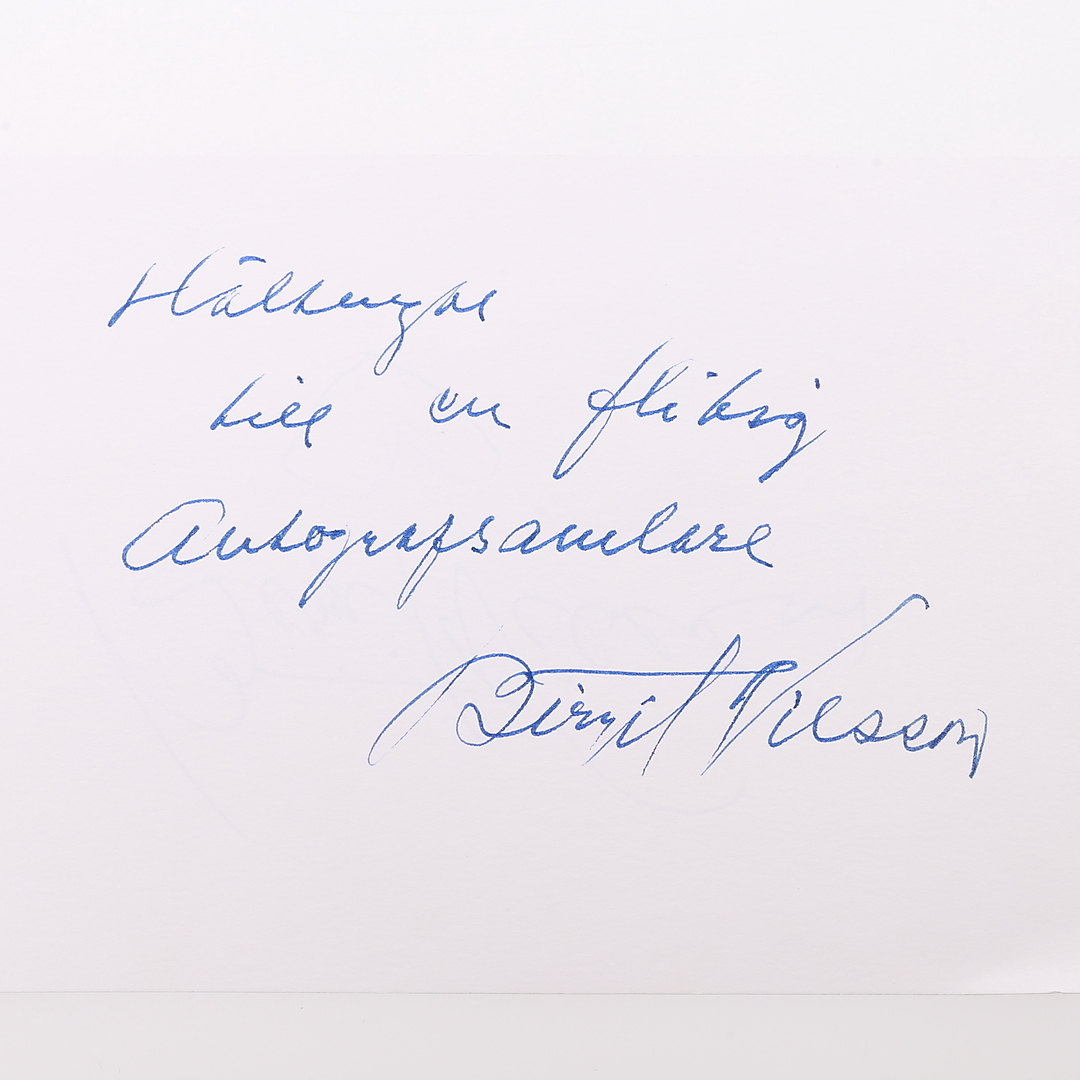 Hälsningar
till en flitig
Autografsamlare
Birgit Nilsson